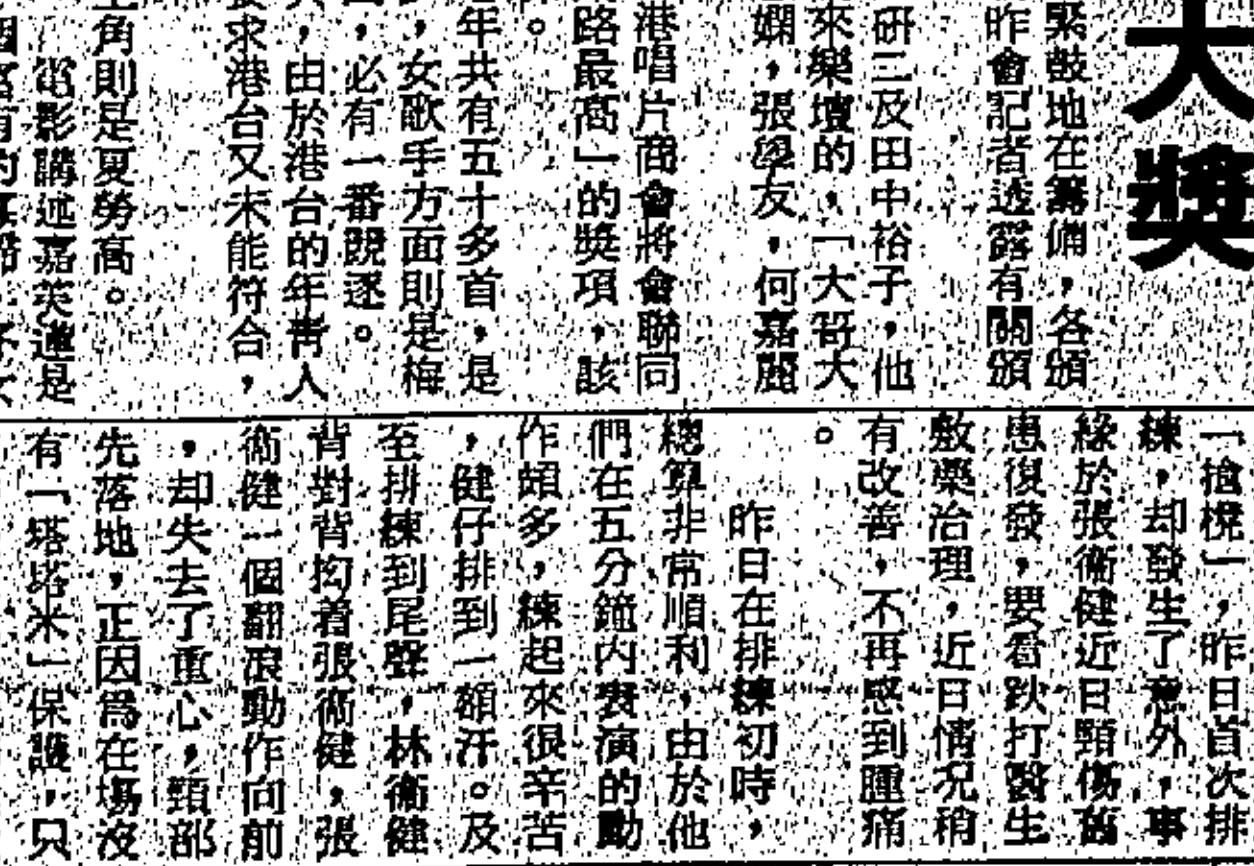 大獎
緊鼓地在籌備，各頒
昨會記者透露有關頒
研二及田中裕子，他
來樂壇的，「大哥大
嫻，張學友，何嘉麗
港唱片商會將會聯同
路最高」的獎項，該
。
年共有五十多首，是
，女歌手方面則是梅
，必有一番競逐。
，由於港台的年靑人
求港台又未能符合，
角則是夏勞高。
電影講述嘉芙蓮是
「搶櫈」，昨日首次排
練，却發生了意外，事
緣於張衞健近日頸傷舊
患復發，要看跌打醫生
敷藥治理，近日情況稍
有改善，不再感到腫痛
。
昨日在排練初時，
總算非常順利，由於他
們在五分鐘內表演的動
作頗多，練起來很辛苦
，健仔排到一額汗。及
至排練到尾聲，林衞健
背對背抅着張衞健，張
衞健一個翻滾動作向前
，却失去了重心，頸部
先落地，正因爲在場沒
有「塌塌米」保護，只